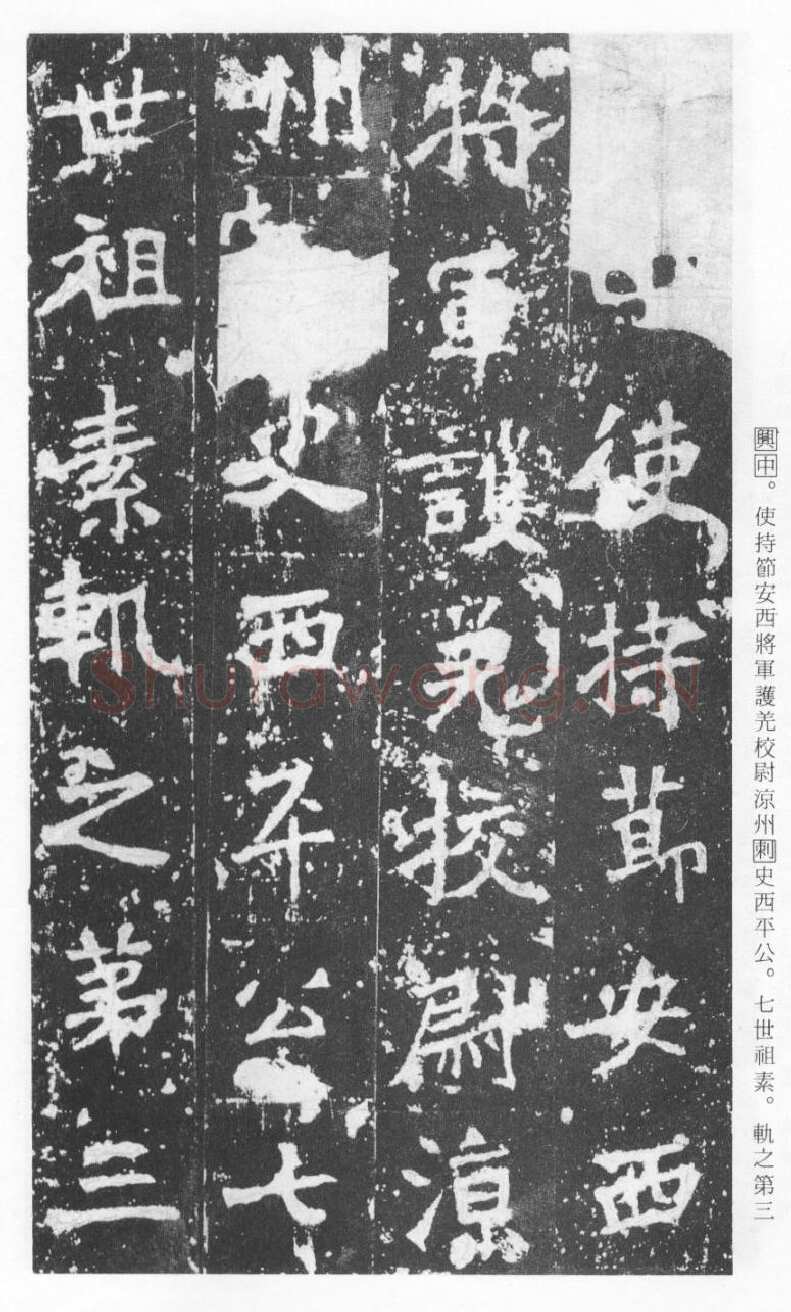 興中。使持節安西將軍護羌校尉涼州刺史西平公。七世祖素。軌之第三
使持節安西
將軍護羌校尉涼
州史西平公七
世祖素軌之第三
Shufawang.CN